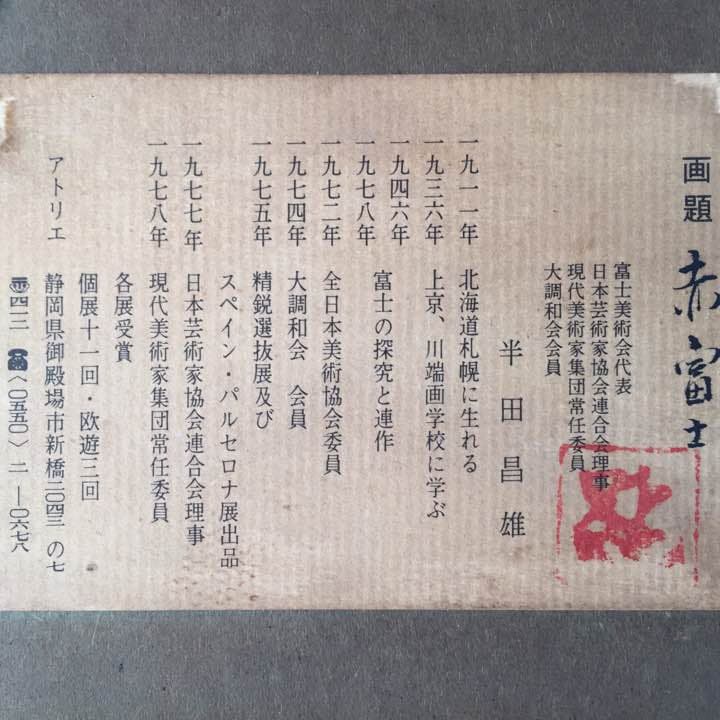 画題 赤富士
富士美術会代表
日本芸術家協会連合会理事
現代美術家集団常任委員
大調和会会員
半田昌雄
一九一一年 北海道札幌に生れる
一九三六年 上京、川端画学校に学ぶ
一九四六年
一九七八年 富士の探究と連作
一九七二年 全日本美術協会委員
一九七四年 大調和会 会員
一九七五年 精鋭選抜展及び
スペイン・バルセロナ展出品
一九七七年 日本芸術家協会連合会理事
一九七八年 現代美術家集団常任委員
各展受賞
個展十一回・欧遊三回
アトリエ 静岡県御殿場市新橋二〇四三の七
〒四一二 ☎〈〇五五〇〉二―〇六七八